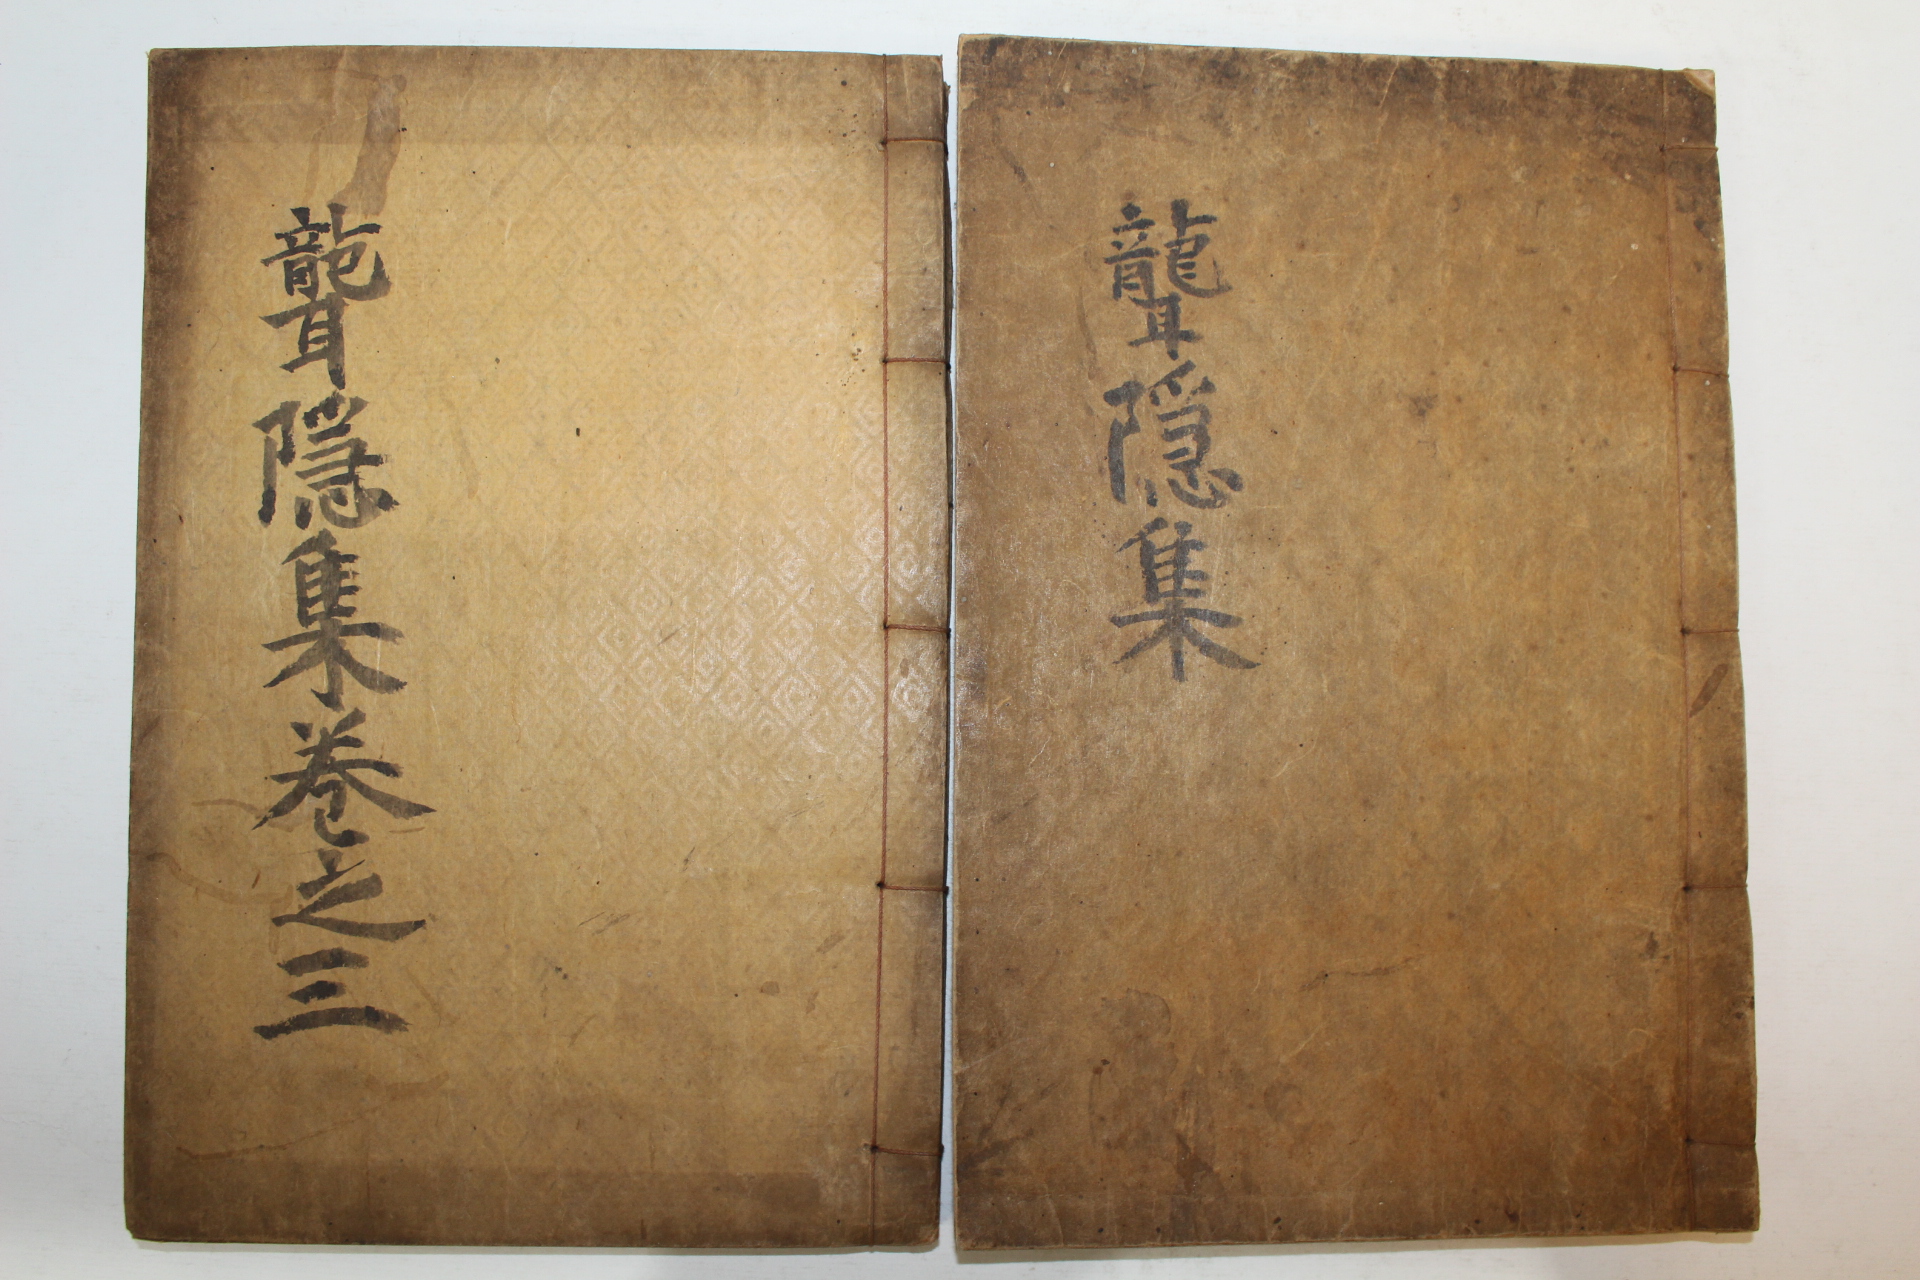 聾隱集
聾隱集卷之三